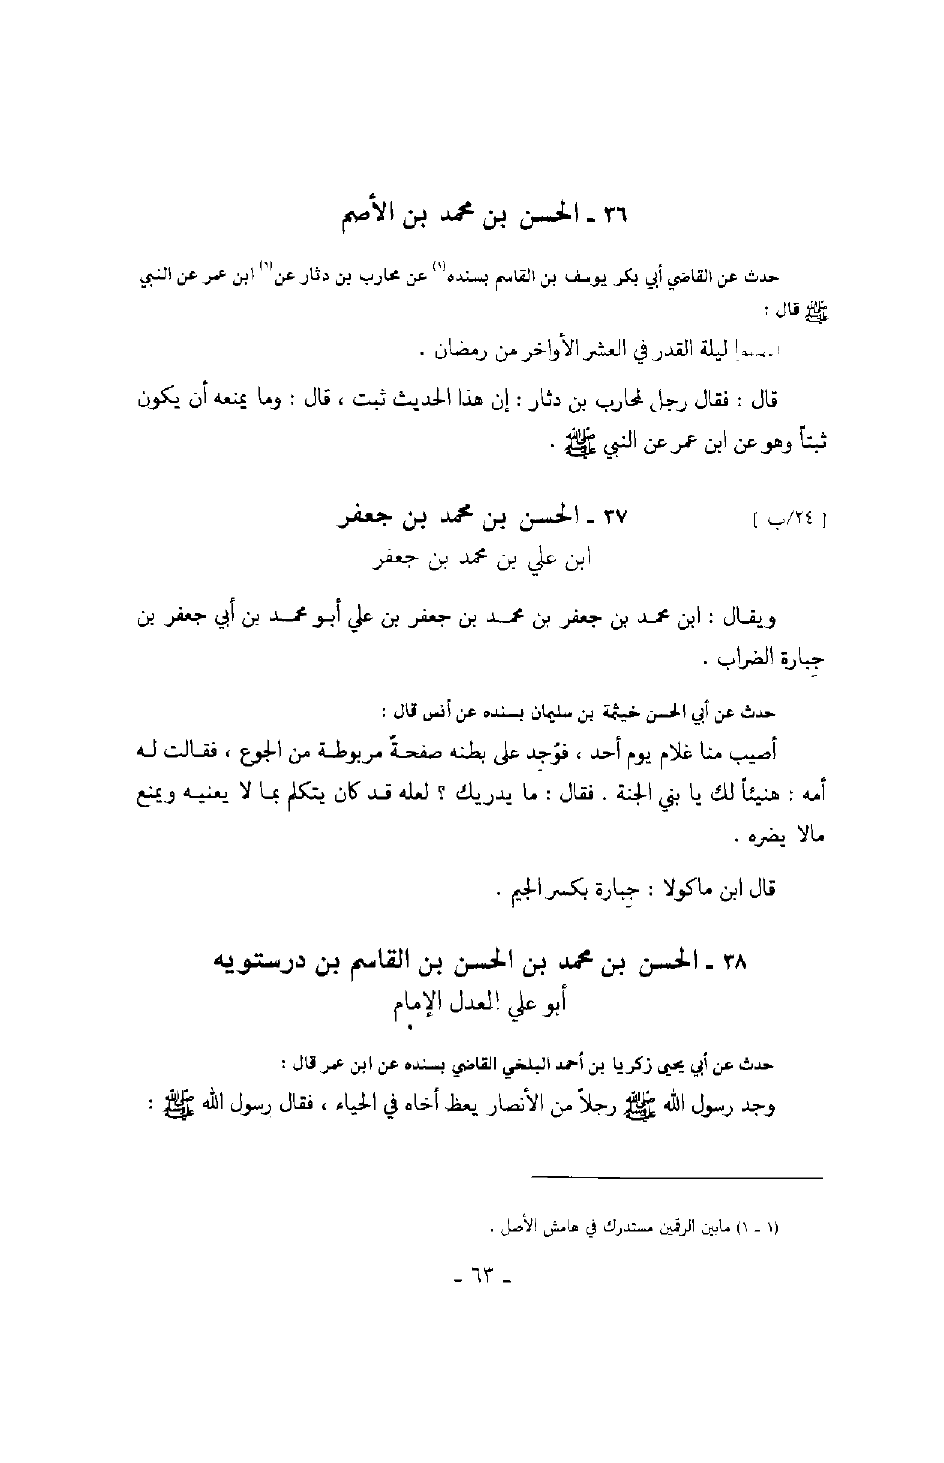 ٣٦ ـ الحسن بن محمد بن الأصم
حدث عن القاضي أبي بكر يوسف بن القاسم بسنده(١) عن محارب بن دثار عن(١) ابن عمر عن النبي
ﷺ قال :
ليلة القدر في العشر الأواخر من رمضان .
قال : فقال رجل لمحارب بن دثار : إن هذا الحديث ثبت ، قال : وما يمنعه أن يكون
ثبتاً وهو عن ابن عمر عن النبي ﷺ .
[ ٢٤/ب ] ٣٧ ـ الحسن بن محمد بن جعفر
ابن علي بن محمد بن جعفر
ويقال : ابن محمد بن جعفر بن محمد بن جعفر بن علي أبو محمد بن أبي جعفر بن
جِبارة الضراب .
حدث عن أبي الحسن خيثمة بن سليمان بسنده عن أنس قال :
أصيب منا غلام يوم أحد ، فوُجِد على بطنه صفحةٌ مربوطة من الجوع ، فقالت له
أمه : هنيئاً لك يا بني الجنة . فقال : ما يدريك ؟ لعله قد كان يتكلم بما لا يعنيه ويمنع
مالا يضره .
قال ابن ماكولا : جِبارة بكسر الجيم .
٣٨ ـ الحسن بن محمد بن الحسن بن القاسم بن درستويه
أبو علي العدل الإمام
حدث عن أبي يحيى زكريا بن أحمد البلخي القاضي بسنده عن ابن عمر قال :
وجد رسول الله ﷺ رجلاً من الأنصار يعظ أخاه في الحياء ، فقال رسول الله ﷺ :
(١ ـ ١) مابين الرقمين مستدرك في هامش الأصل .
ـ ٦٣ ـ